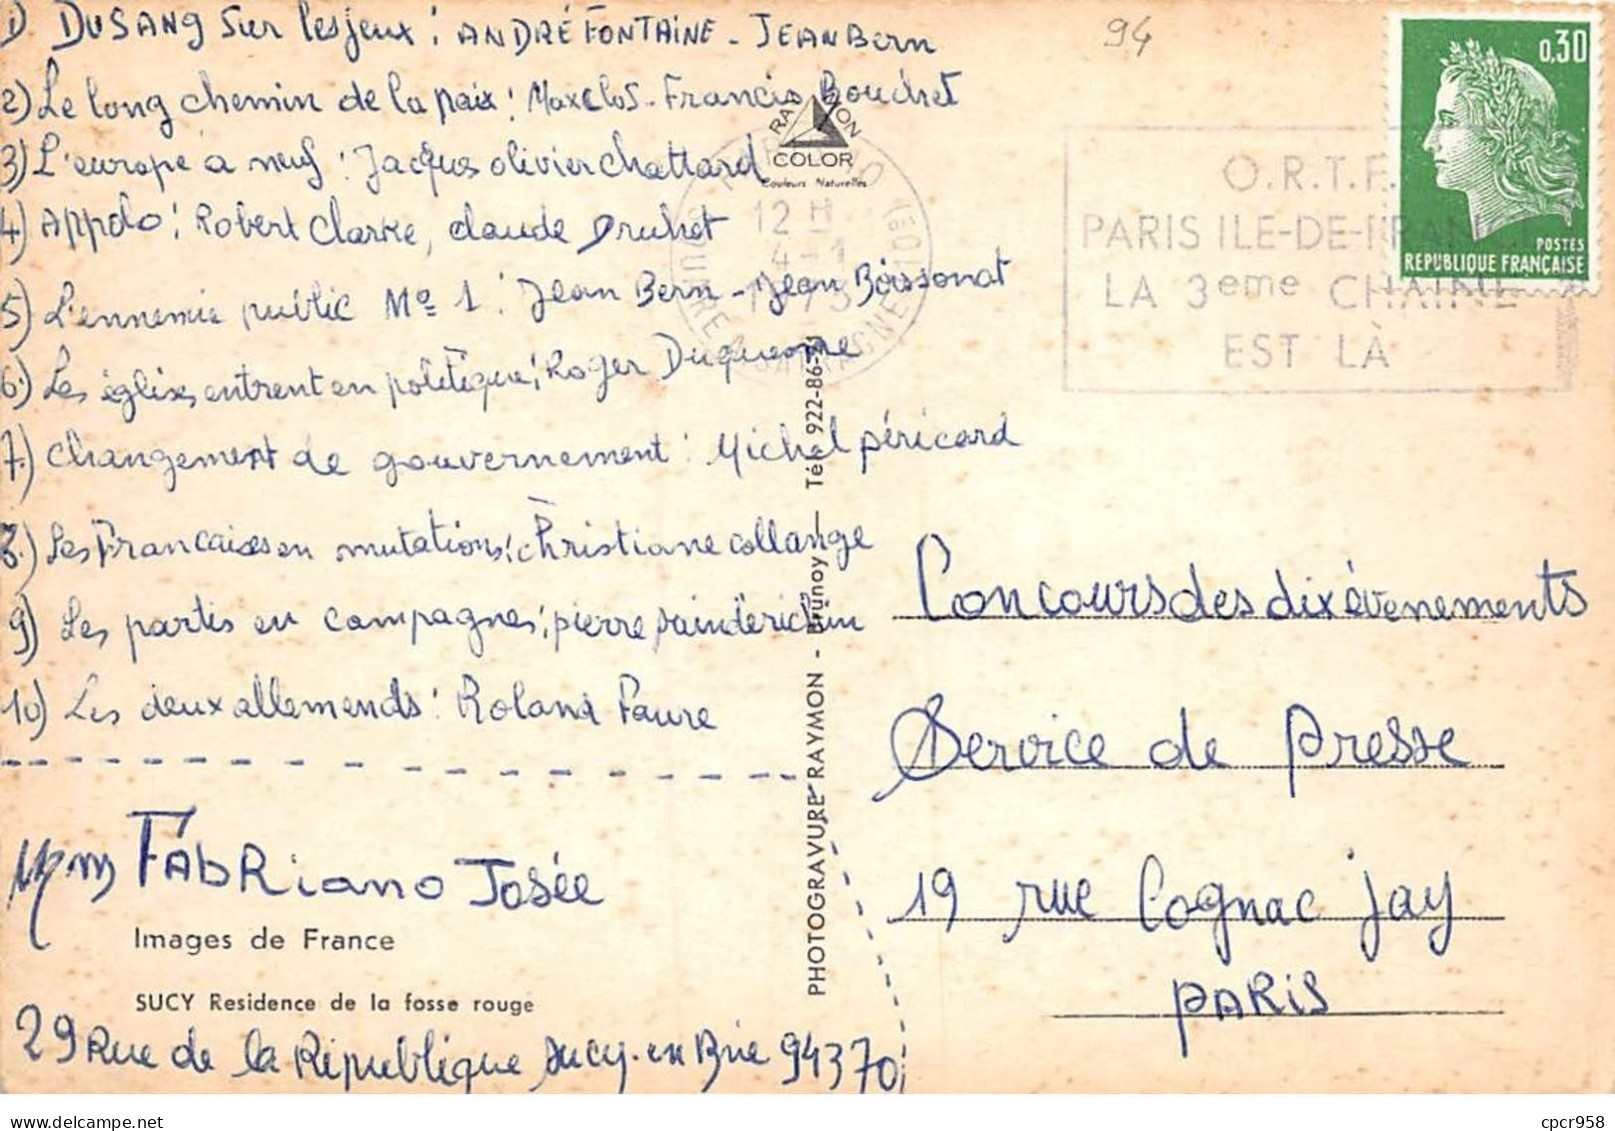 1) DUSANG Sur les jeux : ANDRÉ FONTAINE - JEAN Bern
2) Le long chemin de la paix : Max Clos - Francis Bouchet
3) L'europe a neuf : Jacques olivier chattard
4) Appolo : Robert Clarke, claude Druhet
5) L'ennemie public No 1 : Jean Bern - Jean Boissonat
6) Les églises entrent en politique : Roger Duquesne
7) changement de gouvernement : Michel péricard
8) Les Francaises en mutations : Christiane collange
9) Les partis en campagnes : pierre
10) Les deux allemends : Roland Faure
FAbRiano Josée
Images de France
SUCY Residence de la fosse rouge
29 Rue de la République sucy-en Brie 94370
94
RAYMON
COLOR
Couleurs Naturelles
12 H
4 - 1
PHOTOGRAVURE RAYMON - Brunoy - Tél. 922-86-
O.R.T.F.
PARIS ILE-DE-FRANCE
LA 3eme CHAINE
EST LÀ
0,30
POSTES
REPUBLIQUE FRANÇAISE
Concours des dix évenements
Service de presse
19 rue Cognac Jay
PARIS
cpcr958